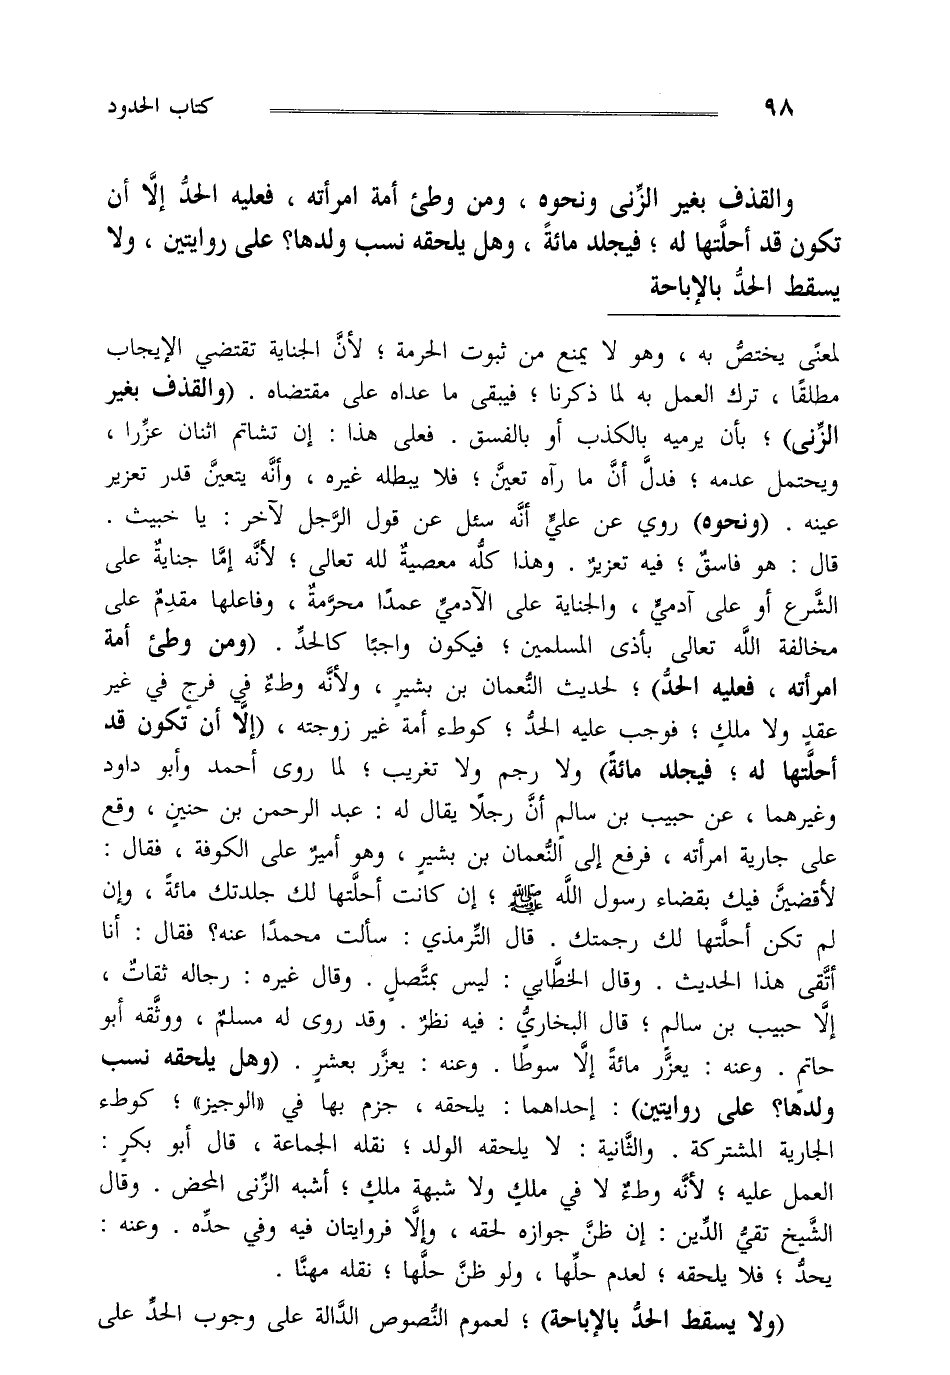 ٩٨ كتاب الحدود
والقذف بغير الزِّنى ونحوه ، ومن وطئ أمة امرأته ، فعليه الحدُّ إلَّا أن
تكون قد أحلَّتها له ؛ فيجلد مائةً ، وهل يلحقه نسب ولدها؟ على روايتين ، ولا
يسقط الحدُّ بالإباحة
لمعنًى يختصُّ به ، وهو لا يمنع من ثبوت الحرمة ؛ لأنَّ الجناية تقتضي الإيجاب
مطلقًا ، ترك العمل به لما ذكرنا ؛ فيبقى ما عداه على مقتضاه . (والقذف بغير
الزِّنى) ؛ بأن يرميه بالكذب أو بالفسق . فعلى هذا : إن تشاتم اثنان عزِّرا ،
ويحتمل عدمه ؛ فدلَّ أنَّ ما رآه تعيَّن ؛ فلا يبطله غيره ، وأنَّه يتعيَّن قدر تعزير
عينه . (ونحوه) روي عن عليٍّ أنَّه سئل عن قول الرَّجل لآخر : يا خبيث .
قال : هو فاسقٌ ؛ فيه تعزيرٌ . وهذا كلُّه معصيةٌ لله تعالى ؛ لأنَّه إمَّا جنايةٌ على
الشَّرع أو على آدميٍّ ، والجناية على الآدميِّ عمدًا محرَّمةٌ ، وفاعلها مقدِمٌ على
مخالفة اللَّه تعالى بأذى المسلمين ؛ فيكون واجبًا كالحدِّ . (ومن وطئ أمة
امرأته ، فعليه الحدُّ) ؛ لحديث النُّعمان بن بشيرٍ ، ولأنَّه وطءٌ في فرجٍ في غير
عقدٍ ولا ملكٍ ؛ فوجب عليه الحدُّ ؛ كوطء أمة غير زوجته ، (إلَّا أن تكون قد
أحلَّتها له ؛ فيجلد مائةً) ولا رجم ولا تغريب ؛ لما روى أحمد وأبو داود
وغيرهما ، عن حبيب بن سالمٍ أنَّ رجلًا يقال له : عبد الرحمن بن حنينٍ ، وقع
على جارية امرأته ، فرفع إلى النُّعمان بن بشيرٍ ، وهو أميرٌ على الكوفة ، فقال :
لأقضينَّ فيك بقضاء رسول اللَّه ﷺ ؛ إن كانت أحلَّتها لك جلدتك مائةً ، وإن
لم تكن أحلَّتها لك رجمتك . قال التِّرمذي : سألت محمدًا عنه؟ فقال : أنا
أتَّقي هذا الحديث . وقال الخطَّابي : ليس بمتَّصلٍ . وقال غيره : رجاله ثقاتٌ ،
إلَّا حبيب بن سالم ؛ قال البخاريُّ : فيه نظرٌ . وقد روى له مسلمٌ ، ووثَّقه أبو
حاتمٍ . وعنه : يعزَّر مائةً إلَّا سوطًا . وعنه : يعزَّر بعشرٍ . (وهل يلحقه نسب
ولدها؟ على روايتين) : إحداهما : يلحقه ، جزم بها في «الوجيز» ؛ كوطء
الجارية المشتركة . والثَّانية : لا يلحقه الولد ؛ نقله الجماعة ، قال أبو بكرٍ :
العمل عليه ؛ لأنَّه وطءٌ لا في ملكٍ ولا شبهة ملكٍ ؛ أشبه الزِّنى المحض . وقال
الشَّيخ تقيُّ الدِّين : إن ظنَّ جوازه لحقه ، وإلَّا فروايتان فيه وفي حدِّه . وعنه :
يحدُّ ؛ فلا يلحقه ؛ لعدم حلِّها ، ولو ظنَّ حلَّها ؛ نقله مهنَّا .
(ولا يسقط الحدُّ بالإباحة) ؛ لعموم النُّصوص الدَّالة على وجوب الحدِّ على